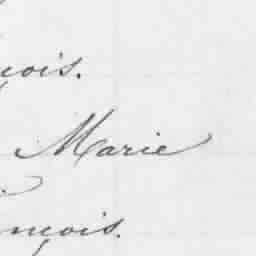 çois.
Marie
nçois.